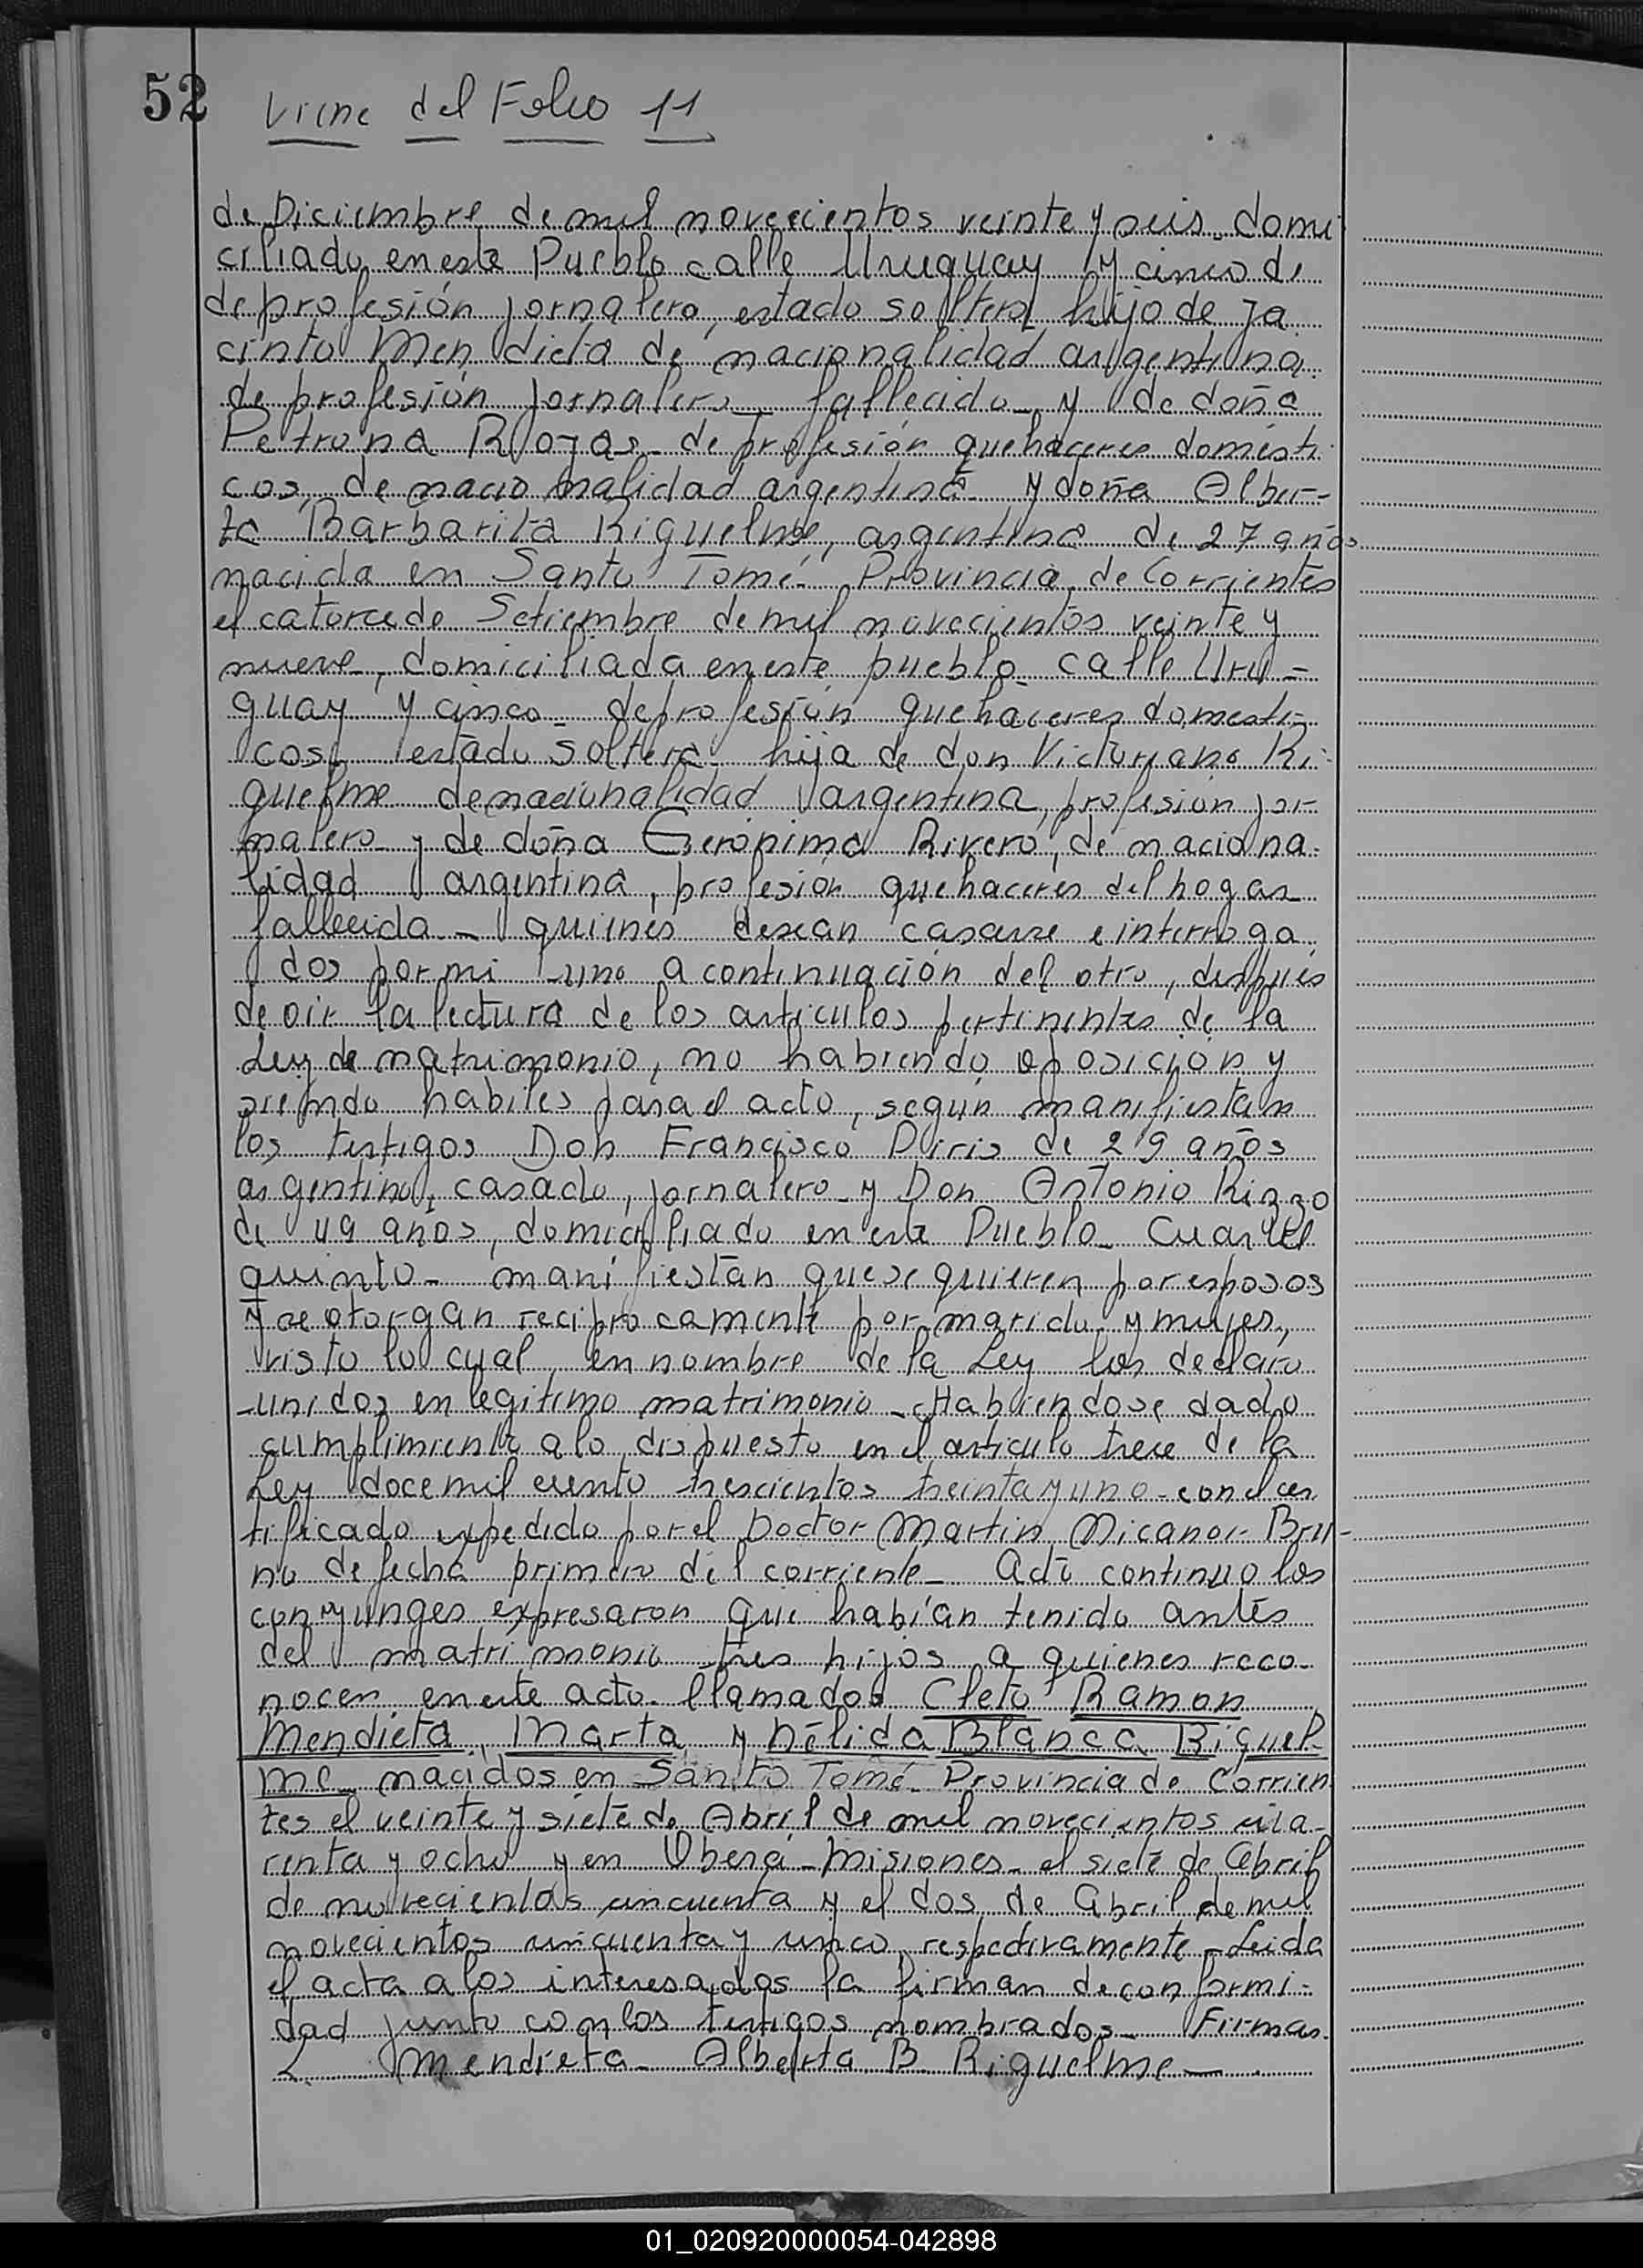 52
Viene del Folio 11
de Diciembre de mil novecientos veinte y seis. domi
ciliado en este Pueblo calle Uruguay y cinco de
de profesión jornalero, estado soltero, hijo de Ja
cinto Mendieta de nacionalidad argentina
de profesión jornalero fallecido y de doña
Petrona Rojas de profesión quehaceres domésti
cos, de nacionalidad argentina y doña Alber-
ta Barbarita Riquelme, argentina de 27 años
nacida en Santo Tomé Provincia de Corrientes
el catorce de Setiembre de mil novecientos veinte y
nueve, domiciliada en este pueblo calle Uru=
guay y cinco de profesión quehaceres domesti-
cos estado soltera hija de don Victoriano Ri-
quelme de nacionalidad argentina, profesion jor-
nalero y de doña Gerónima Rivero, de naciona-
lidad argentina, profesion quehaceres del hogar
fallecida - quienes desean casarse e interroga
dos por mi uno a continuación del otro, después
de oir la lectura de los articulos pertinentes de la
Ley de matrimonio, no habiendo oposición y
siendo habiles para el acto, según manifiestan
los testigos Don Francisco Piris de 29 años
argentino, casado, jornalero y Don Antonio Rizzo
de 49 años, domiciliado en este Pueblo Cuartel
quinto - manifiestan que se quieren por esposos
y se otorgan reciprocamente por marido y mujer,
visto lo cual en nombre de la Ley los declaro
unidos en legitimo matrimonio - Habiendose dado
cumplimiento a lo dispuesto en el articulo trece de la
Ley doce mil ciento trescientos treinta y uno - con el cer
tificado expedido por el Doctor Martin Nicanor Bru-
no de fecha primero del corriente - Acto continuo los
conyunges expresaron que habían tenido antes
del matrimonio tres hijos a quienes reco-
nocen en este acto. llamados Cleto Ramon
Mendieta, Marta y Nélida Blanca Riquel
me nacidos en Santo Tomé Provincia de Corrien
tes el veinte y siete de Abril de mil novecientos cua-
renta y ocho y en Oberá - Misiones - el siete de Abril
de novecientos cincuenta y el dos de Abril de mil
novecientos cincuenta y cinco, respectivamente - Leida
el acta a los interesados la firman de conformi=
dad junto con los testigos nombrados - Firmas.
L. Mendieta - Alberta B. Riquelme -
01_020920000054-042898